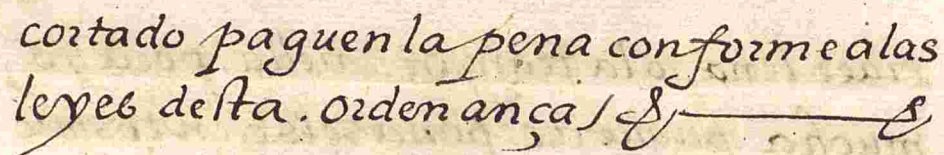 cortado paguen la pena conforme a las
leyes desta. ordenança /